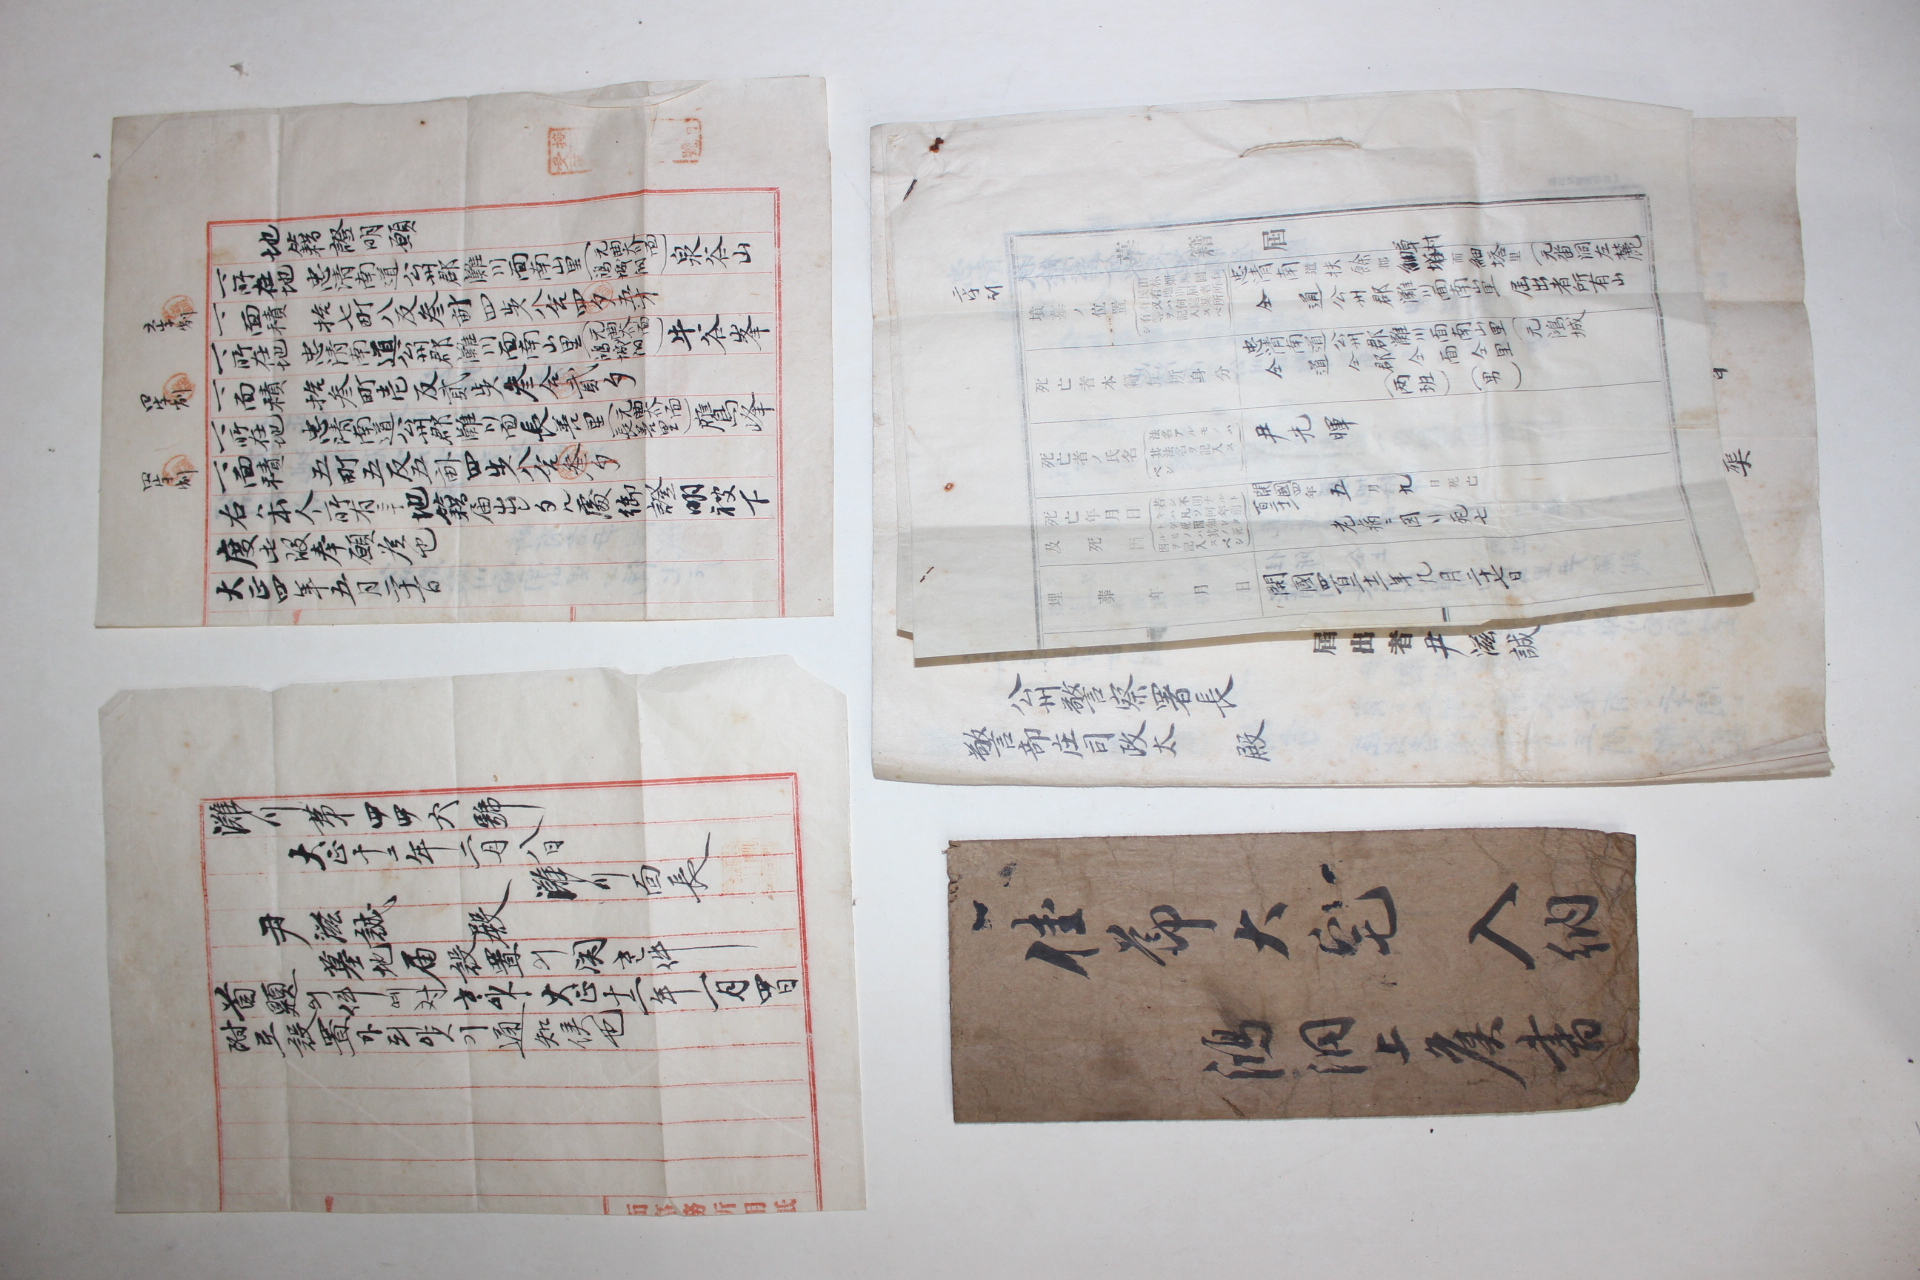 灘川第四四六號
大正十二年二月八日
灘川面長
尹滋誠 殿
墓地届設置의関한件
首題의件에対하야大正十二年一月四日
附로設置가되얏기通知候也
面事務所用紙
六字削
四字削
四字削
地籍證明願
一、所在地 忠清南道公州郡灘川面南山里(元曲火面鴻城洞)泉谷山
一、面積 拾七町八反叁畝四步八合四夕五才
一、所在地 忠清南道公州郡灘川面南山里(元曲火面鴻城洞)牛谷峯
一、面積 拾叁町壱反貳步叁合貳夕
一、所在地 忠清南道公州郡灘川面長善里(元曲火面長善里)鷹峰
一、面積 五町五反五畝四步八合叁夕
右ハ本人所有ニシテ地籍届出シタル處御證明被下
度此段奉願候也
大正四年五月二十日
佳節大宅 入納
鴻洞上候書
二字引
墓籍届
墳墓ノ位置
忠清南道扶餘郡草村面細塔里(元畓洞左麓
仝 道公州郡灘川面南山里 届出者所有山
死亡者本籍住所身分
忠清南道公州郡灘川面南山里(元鴻城
仝道仝郡仝面仝里
(両班)(男)
死亡者ノ氏名
(法名アルモノハ其法名ヲ記入スベシ)
尹光暉
死亡年月日及死因
開國四百二十二年五月九日死亡
老病ニ因リ死亡
埋葬年月日
開國四百二十二年九月二十七日
届出者尹滋誠
公州警察署長
警部庄司政太 殿